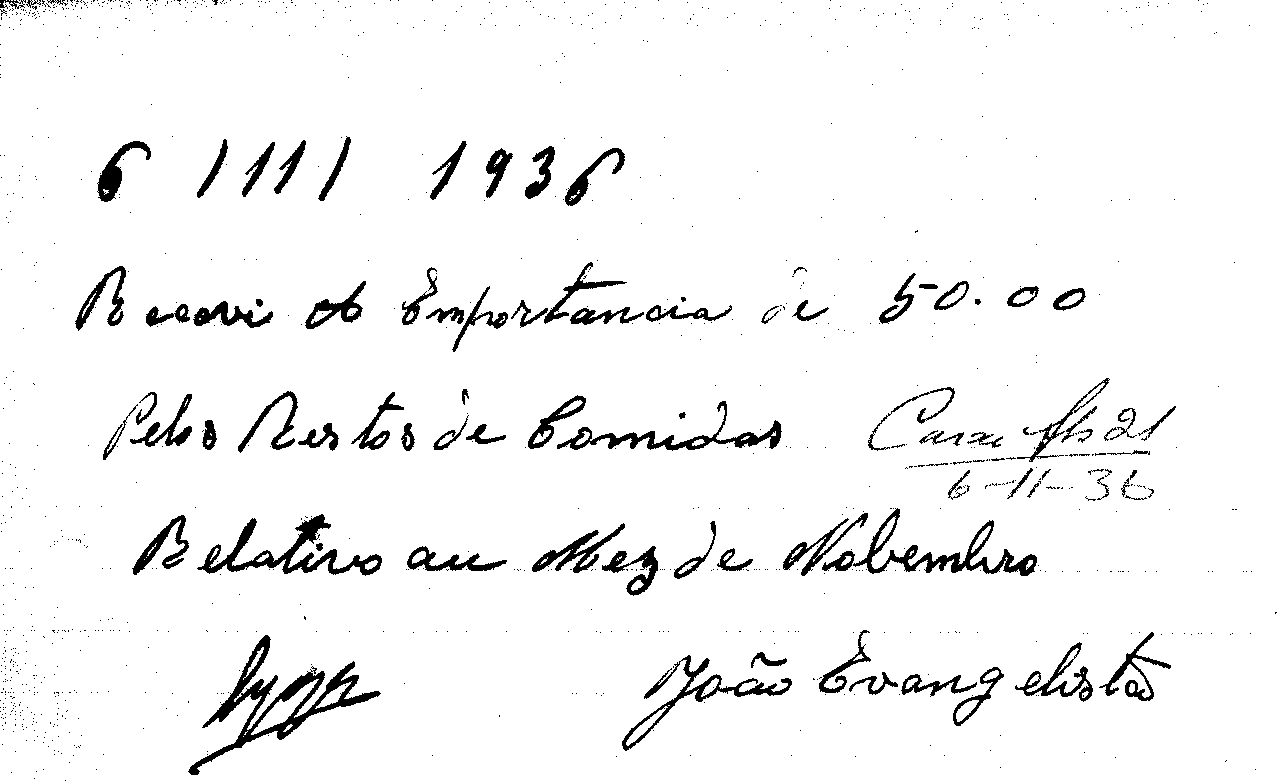 6 / 11 / 1936
Recevi A Emportancia de 50.00
Pelos Restos de Comidas
Caixa fls 21
6-11-36
Relativo au Mez de Nobembro
João Evangelista